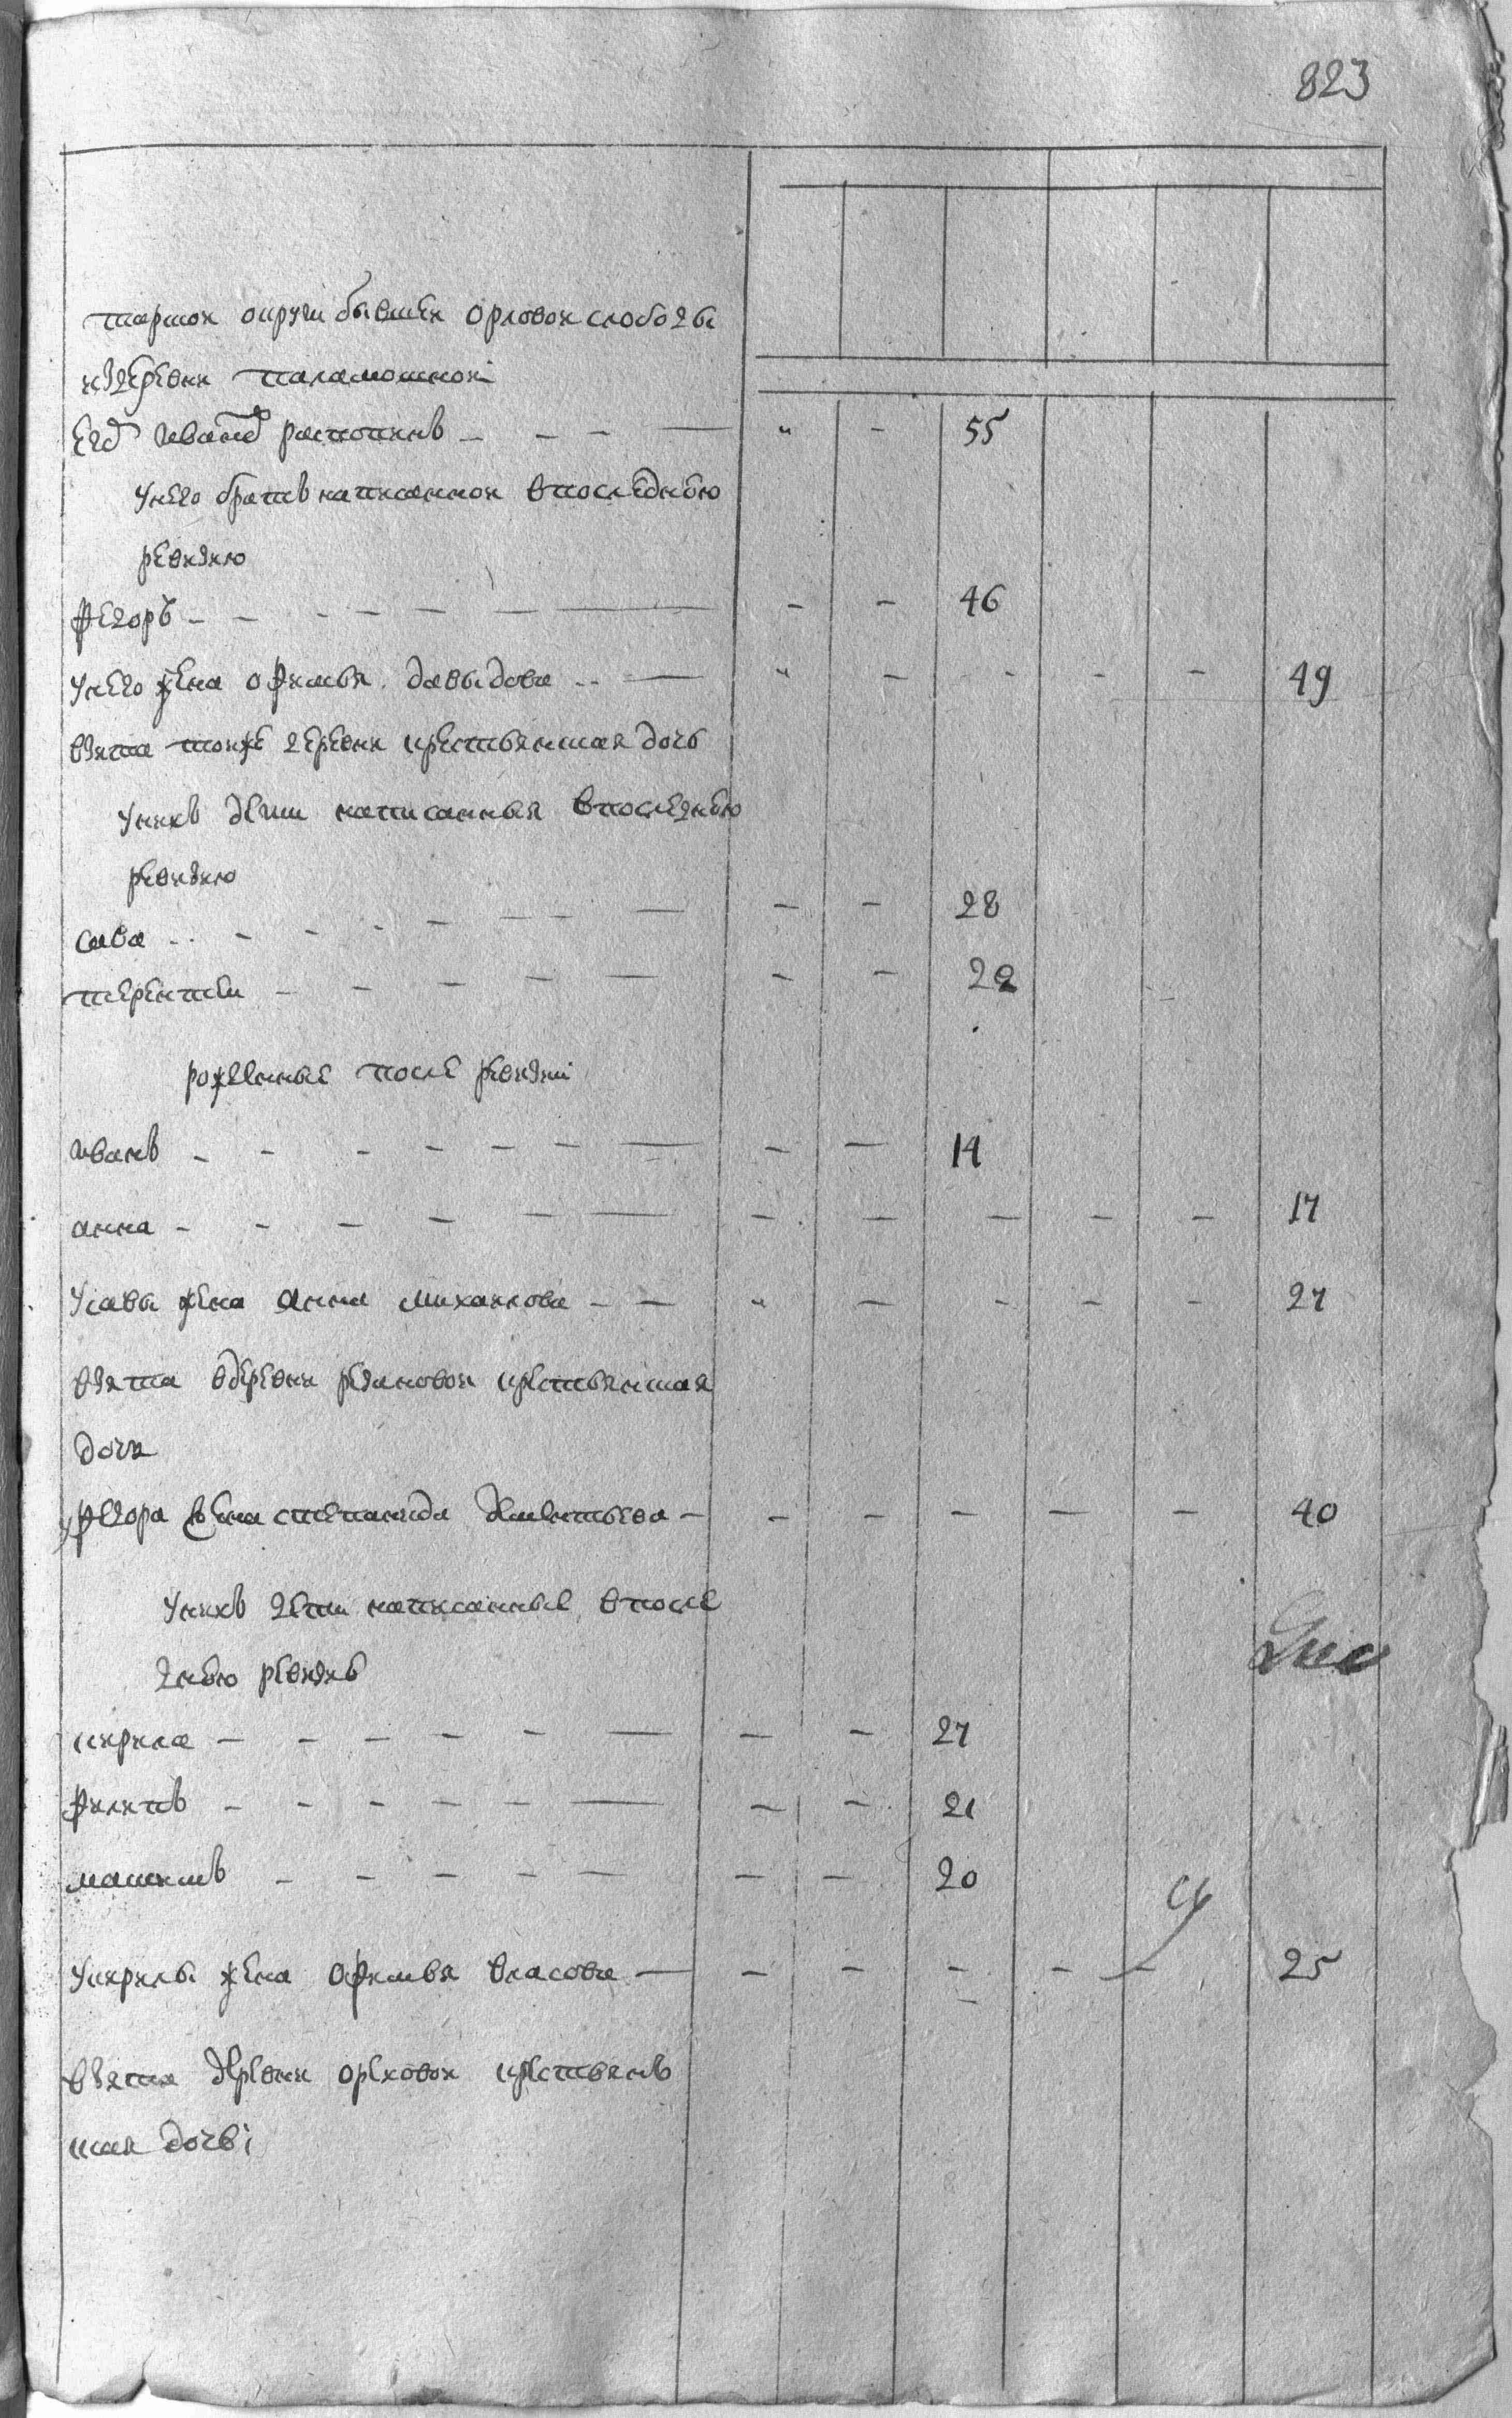 823
тарской округи бывшей орловой слободы
из деревни паламошной
его Иванов растопинъ - - - — " - 55
у него братъ написанной в последнюю
ревизию
федоръ - - - - - - — - - 46
у него жена офимья давыдова - — " - - - - 49
взята тойже деревни крестьянская дочь
у нихъ дети написанныя в последнюю
ревизию
сава - - - - - - - — - - 28
терентеи - - - - - — - - 22
рожденные после ревизии
иванъ - - - - - - — - — 14
анна - - - - - — - — — - - 17
у савы жена анна михаилова - — " — - - - 27
взята в деревни резановой крестьянская
дочь
у федора жена степанида дементьева - - - - — - 40
у нихъ дети написанные в после
днюю ревизию
кирила - - - - - — — - 27
филипъ - - - - - — - - 21
максимъ - - - - — - - 20
у кирилы жена офимья власова — - - - - - 25
взята деревни ореховой крестьянъ
ская дочь